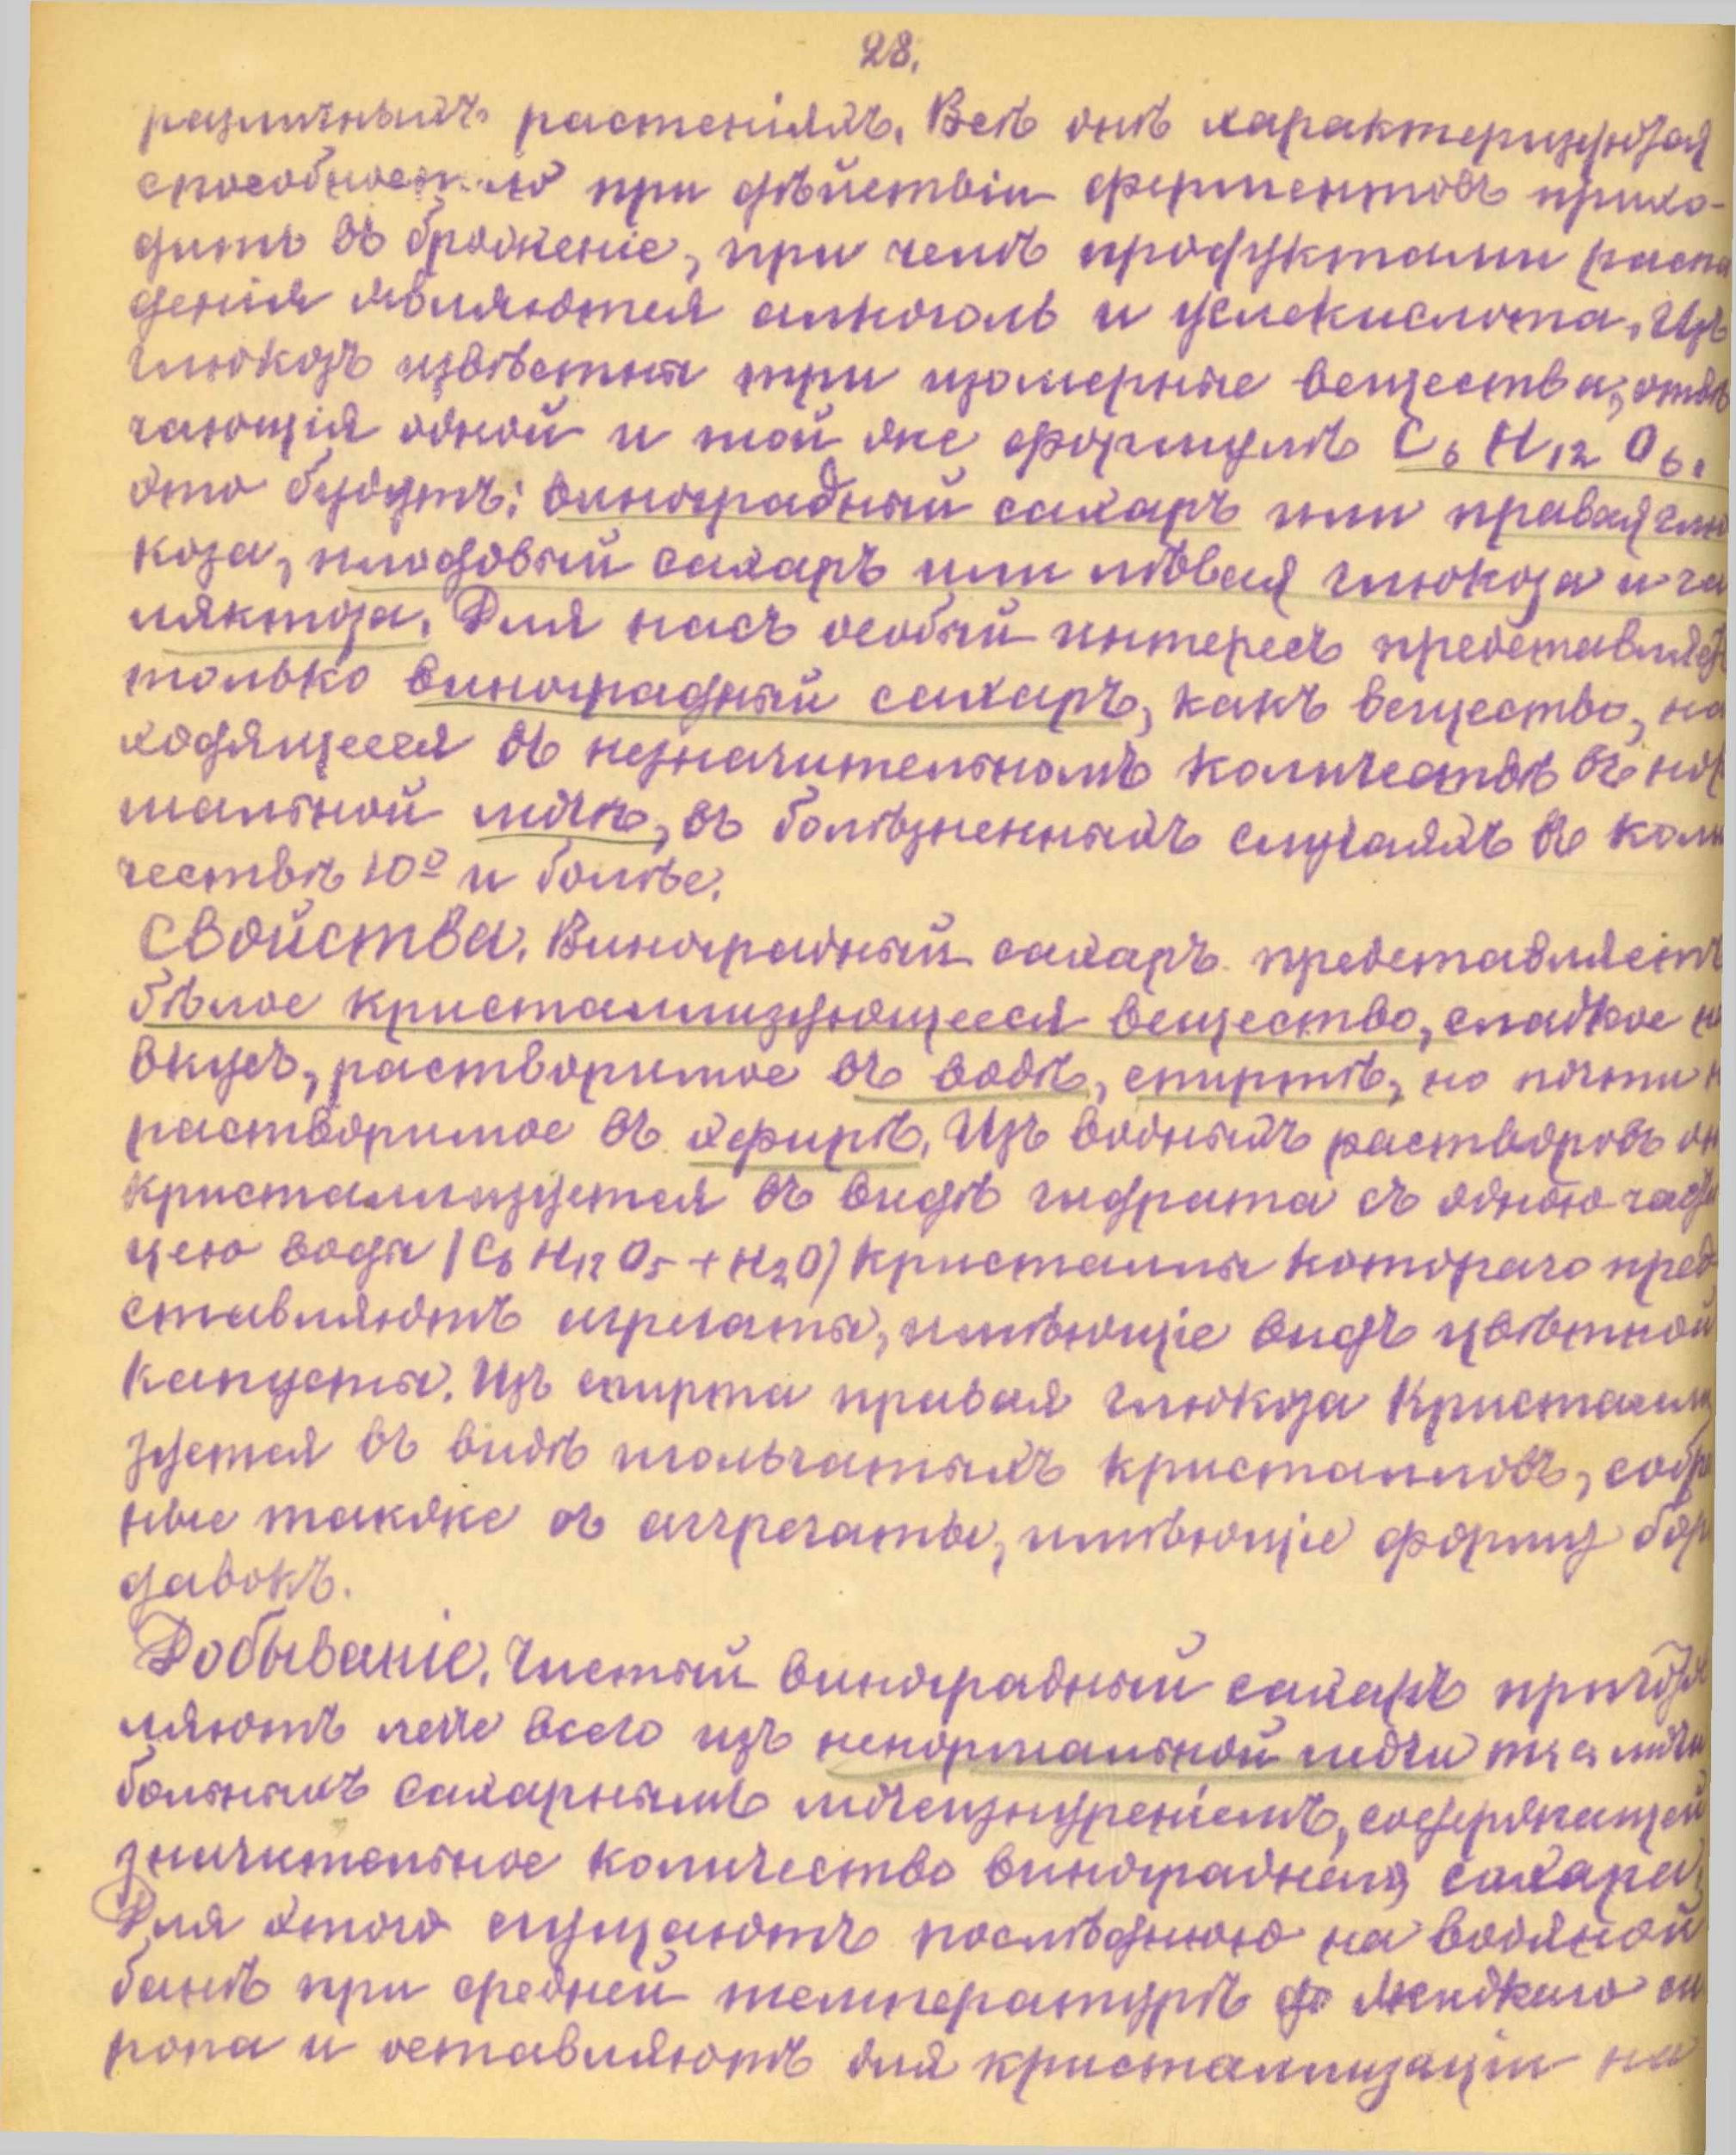 28.
различныхъ растеніяхъ. Всѣ онѣ характеризуются
способностью при дѣйствіи ферментовъ прихо-
дить въ броженіе, при чемъ продуктами распа
денія являются алкоголь и углекислота. Изъ
глюкозъ извѣстны три изомерные вещества, отвѣ
чающія одной и той же формулѣ C6 H12 O6.
Это будутъ: виноградный сахаръ или правая глю
коза, плодовый сахаръ или лѣвая глюкоза и га
ляктоза. Для насъ особый интересъ представляетъ
только виноградный сахаръ, какъ вещество, на
ходящееся въ незначительномъ количествѣ въ нор
мальной мочѣ, въ болѣзненныхъ случаяхъ въ коли
чествѣ 10% и болѣе.
Свойства. Виноградный сахаръ представляетъ
бѣлое кристаллизующееся вещество, сладкое на
вкусъ, растворимое въ водѣ, спиртѣ, но почти не
растворимое въ эфирѣ. Изъ водныхъ растворовъ он
кристаллизуется въ видѣ гидрата съ одною части
цею воды (C6 H12 O5 + H2O) кристаллы котораго пред
ставляютъ агрегаты, имѣющіе видъ цвѣтной
капусты. Изъ спирта правая глюкоза кристалли
зуется въ видѣ игольчатыхъ кристалловъ, собра
ные также въ аггрегаты, имѣющіе форму бор
давокъ.
Добываніе. Чистый виноградный сахаръ приготов
ляютъ легче всего изъ ненормальной мочи т. е. мочи
больныхъ сахарнымъ мочеизнуреніемъ, содержащей
значительное количество винограднаго сахара.
Для этого сгущаютъ послѣднюю на водяной
банѣ при средней температурѣ до жидкаго си
ропа и оставляютъ для кристаллизаціи на